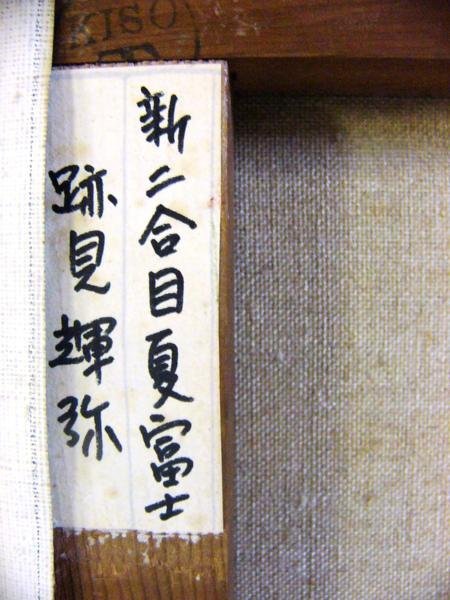 KISO
新二合目夏富士
跡見輝弥